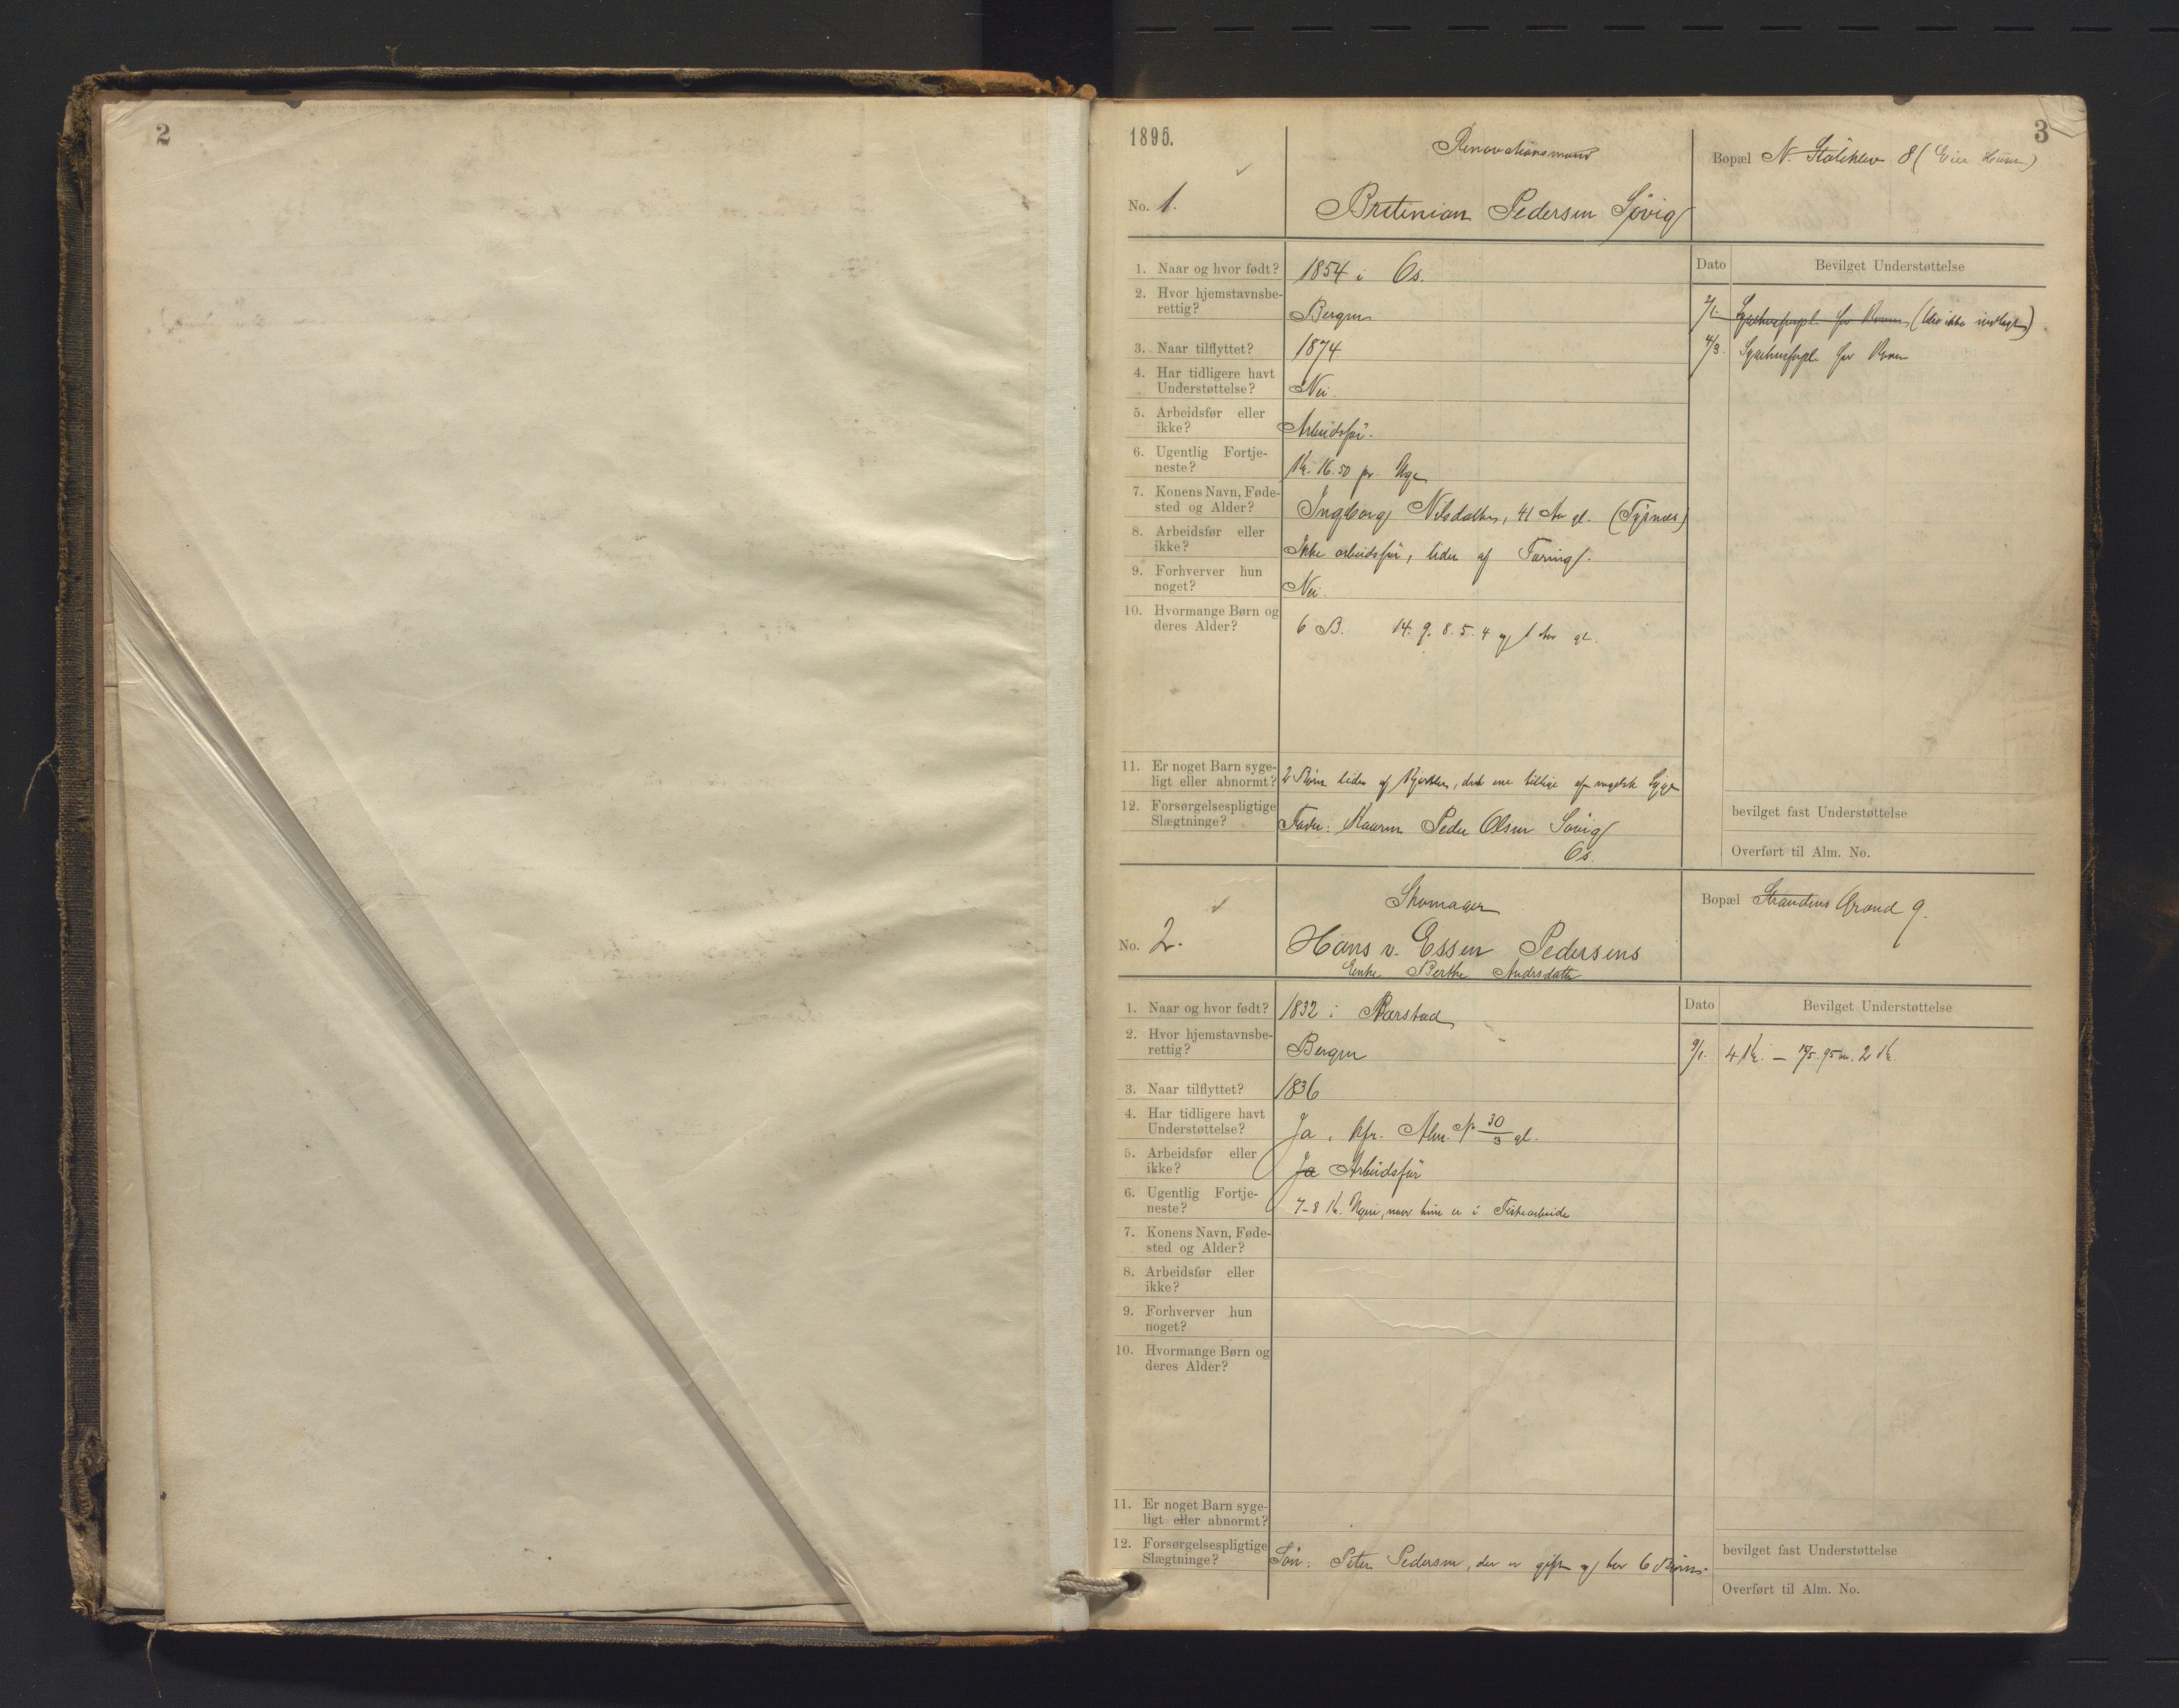 2
1895.
3
Renovationsmand
Bopæl N. Stölehlev 8 (Eier Huset)
No. 1.
Bretinian Pedersen Søvig
1. Naar og hvor født? 1854 i Os.
Dato Bevilget Understøttelse
2. Hvor hjemstavnsbe-
rettig? Bergen
2/1. Sygehusforpl. for Konen (blev ikke indlagt)
3. Naar tilflyttet? 1874
4/3. Sygehusforpl. for Konen
4. Har tidligere havt
Understøttelse? Nei.
5. Arbeidsfør eller
ikke? Arbeidsför.
6. Ugentlig Fortje-
neste? Kr. 16.50 pr. Uge
7. Konens Navn, Føde-
sted og Alder? Ingborg Nilsdatter, 41 Aar gl. (Tysnæs)
8. Arbeidsfør eller
ikke? Ikke arbeidsför, lider af Tæring.
9. Forhverver hun
noget? Nei.
10. Hvormange Børn og
deres Alder? 6 B. 14. 9. 8. 5. 4 og 1 Aar gl.
11. Er noget Barn syge-
ligt eller abnormt? 2 Børn lider af Kjertler, det ene tillige af engelsk Syge
12. Forsørgelsespligtige
Slægtninge? Fader: Peder Olsen Søvig
Os.
bevilget fast Understøttelse
Overført til Alm. No.
Skomager
Bopæl Strandens Grand 9.
No. 2.
Hans v. Essen Pedersens
Enke Berthe Andrsdatter
1. Naar og hvor født? 1832 i
Dato Bevilget Understøttelse
2. Hvor hjemstavnsbe-
rettig? Bergen
9/1. 4 Kr. — 15/5. 95 2 Kr.
3. Naar tilflyttet? 1836
4. Har tidligere havt
Understøttelse? Ja, kfr. Alm. No 30/3 gl.
5. Arbeidsfør eller
ikke? Ja Arbeidsför
6. Ugentlig Fortje-
neste? 7-8 Kr. Ugen, naar hun er i Fiskearbeide
7. Konens Navn, Føde-
sted og Alder?
8. Arbeidsfør eller
ikke?
9. Forhverver hun
noget?
10. Hvormange Børn og
deres Alder?
11. Er noget Barn syge-
ligt eller abnormt?
12. Forsørgelsespligtige
Slægtninge? Søn: Peter Pedersen, der er gift og har 6 Børn.
bevilget fast Understøttelse
Overført til Alm. No.